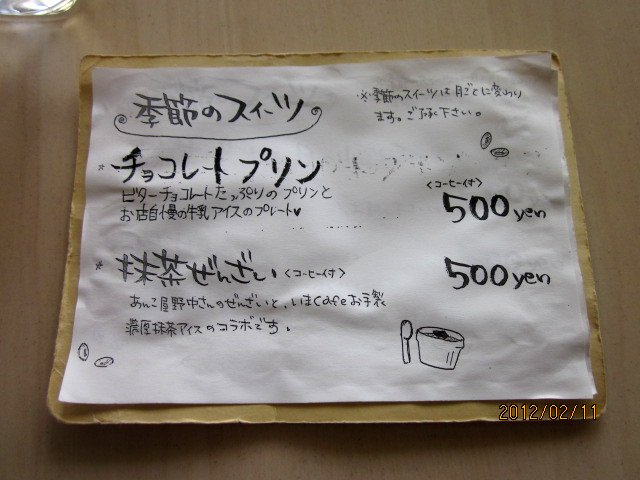 季節のスイーツ
※季節のスイーツは月ごとに変わり
ます。ご了承下さい。
*チョコレートプリン
ビターチョコレートたっぷりのプリンと
お店自慢の牛乳アイスのプレート♥
<コーヒー付>
500yen
*抹茶ぜんざい<コーヒー付>
500yen
あんこ屋野中さんのぜんざいと、いまcafeお手製
濃厚抹茶アイスのコラボです。
2012/02/11